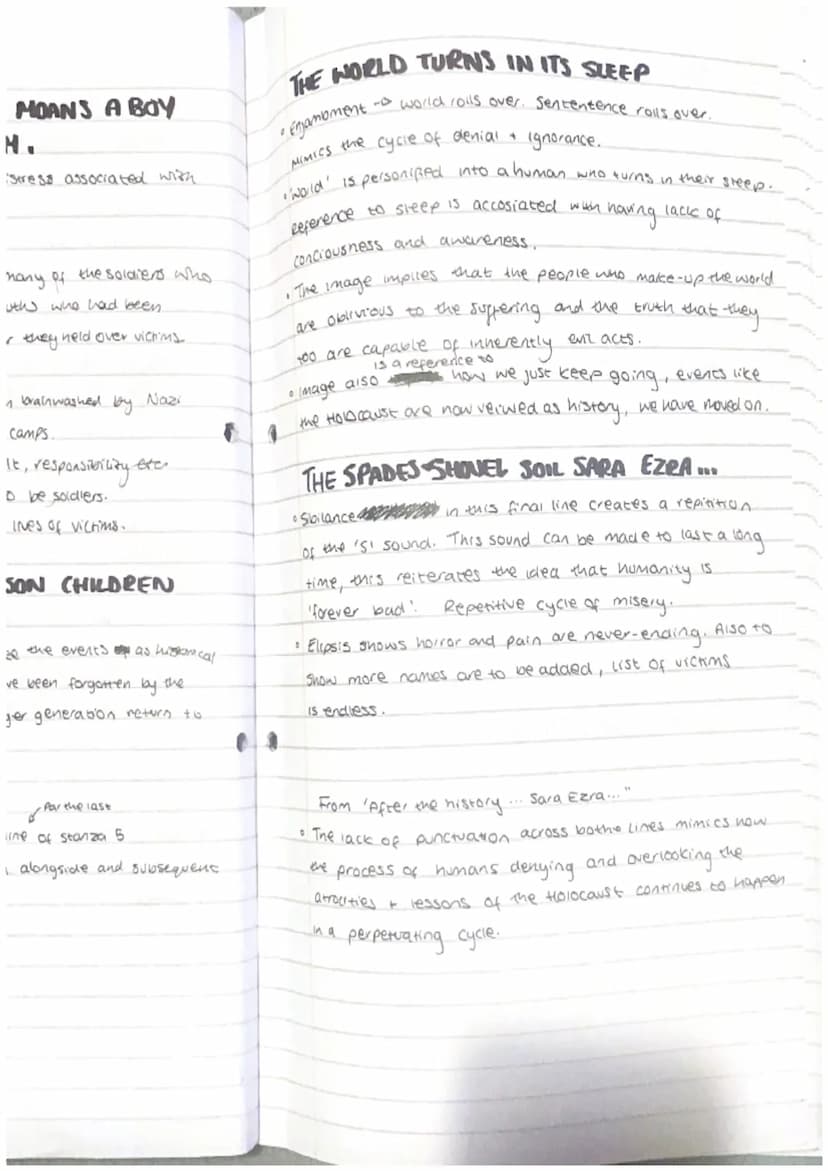 MOANS A BOY
M.
stress associated with
many of the soldiers who
uths who had been
r they held over victims.
n brainwashed by Nazi
camps.
lt, responsibility etc
o be soldiers.
lives of victims.
SON CHILDREN
se the events as historical
ve been forgotten by the
ger generation return to
for the last
line of stanza 5
alongside and subsequent
THE WORLD TURNS IN ITS SLEEP
• Enjambment → world rolls over. Sententence rolls over.
Mimics the cycle of denial + ignorance.
• 'World' is personified into a human who turns in their sleep.
Reference to sleep is accosiated with having lack of
conciousness and awareness.
• The image implies that the people who make-up the world
are oblivious to the suffering and the truth that they
too are capable of inherently evil acts.
is a reference to
• Image also how we just keep going, events like
the Holocaust are now veiwed as history, we have moved on.
THE SPADES SHOVEL SOIL SARA EZRA...
• Sibilance in this final line creates a repitition
of the 's' sound. This sound can be made to last a long
time, this reiterates the idea that humanity is
'forever bad'. Repetitive cycle of misery.
• Elipsis shows horror and pain are never-ending. Also to
show more names are to be added, list of victims
is endless.
From 'After the history ... Sara Ezra..."
• The lack of punctuation across bothe lines mimics how
the process of humans denying and overlooking the
atrocities + lessons of the Holocaust continues to happen
in a perpetuating cycle.